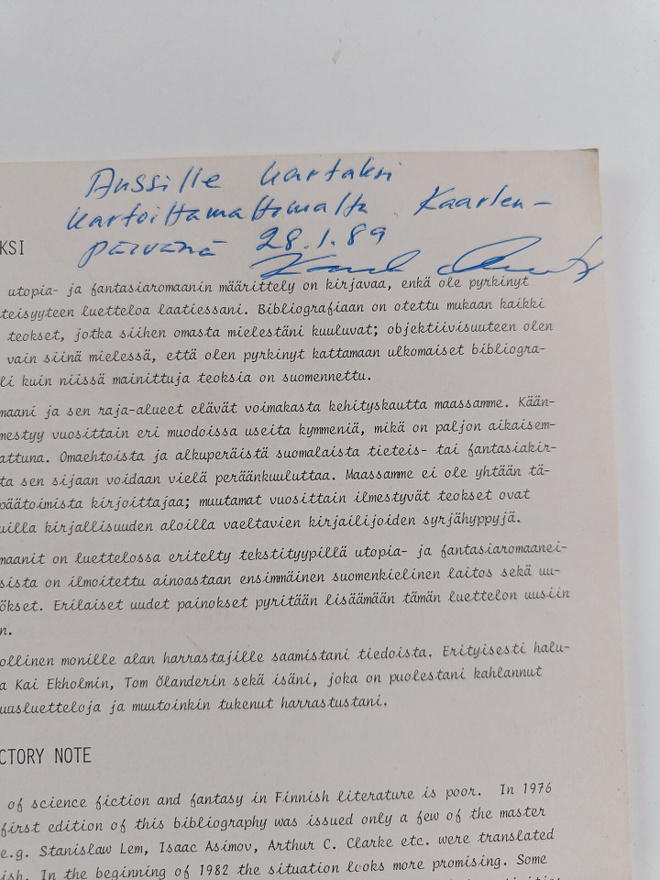 Anssille kartaksi
kartoittamattomalta Kaarlen-
päivänä 28.1.89
KSI
utopia- ja fantasiaromaanin määrittely on kirjavaa, enkä ole pyrkinyt
teisyyteen luetteloa laatiessani. Bibliografiaan on otettu mukaan kaikki
teokset, jotka siihen omasta mielestäni kuuluvat; objektiivisuuteen olen
vain siinä mielessä, että olen pyrkinyt kattamaan ulkomaiset bibliogra-
li kuin niissä mainittuja teoksia on suomennettu.
maani ja sen raja-alueet elävät voimakasta kehityskautta maassamme. Kään-
mestyy vuosittain eri muodoissa useita kymmeniä, mikä on paljon aikaisem-
attuna. Omaehtoista ja alkuperäistä suomalaista tieteis- tai fantasiakir-
ta sen sijaan voidaan vielä peräänkuuluttaa. Maassamme ei ole yhtään tä-
päätoimista kirjoittajaa; muutamat vuosittain ilmestyvät teokset ovat
uilla kirjallisuuden aloilla vaeltavien kirjailijoiden syrjähyppyjä.
maanit on luettelossa eritelty tekstityypillä utopia- ja fantasiaromaanei-
sista on ilmoitettu ainoastaan ensimmäinen suomenkielinen laitos sekä uu-
ökset. Erilaiset uudet painokset pyritään lisäämään tämän luettelon uusiin
n.
ollinen monille alan harrastajille saamistani tiedoista. Erityisesti halu-
a Kai Ekholmin, Tom Ölanderin sekä isäni, joka on puolestani kahlannut
uasluetteloja ja muutoinkin tukenut harrastustani.
CTORY NOTE
of science fiction and fantasy in Finnish literature is poor. In 1976
first edition of this bibliography was issued only a few of the master
e.g. Stanislaw Lem, Isaac Asimov, Arthur C. Clarke etc. were translated
ish. In the beginning of 1982 the situation looks more promising. Some